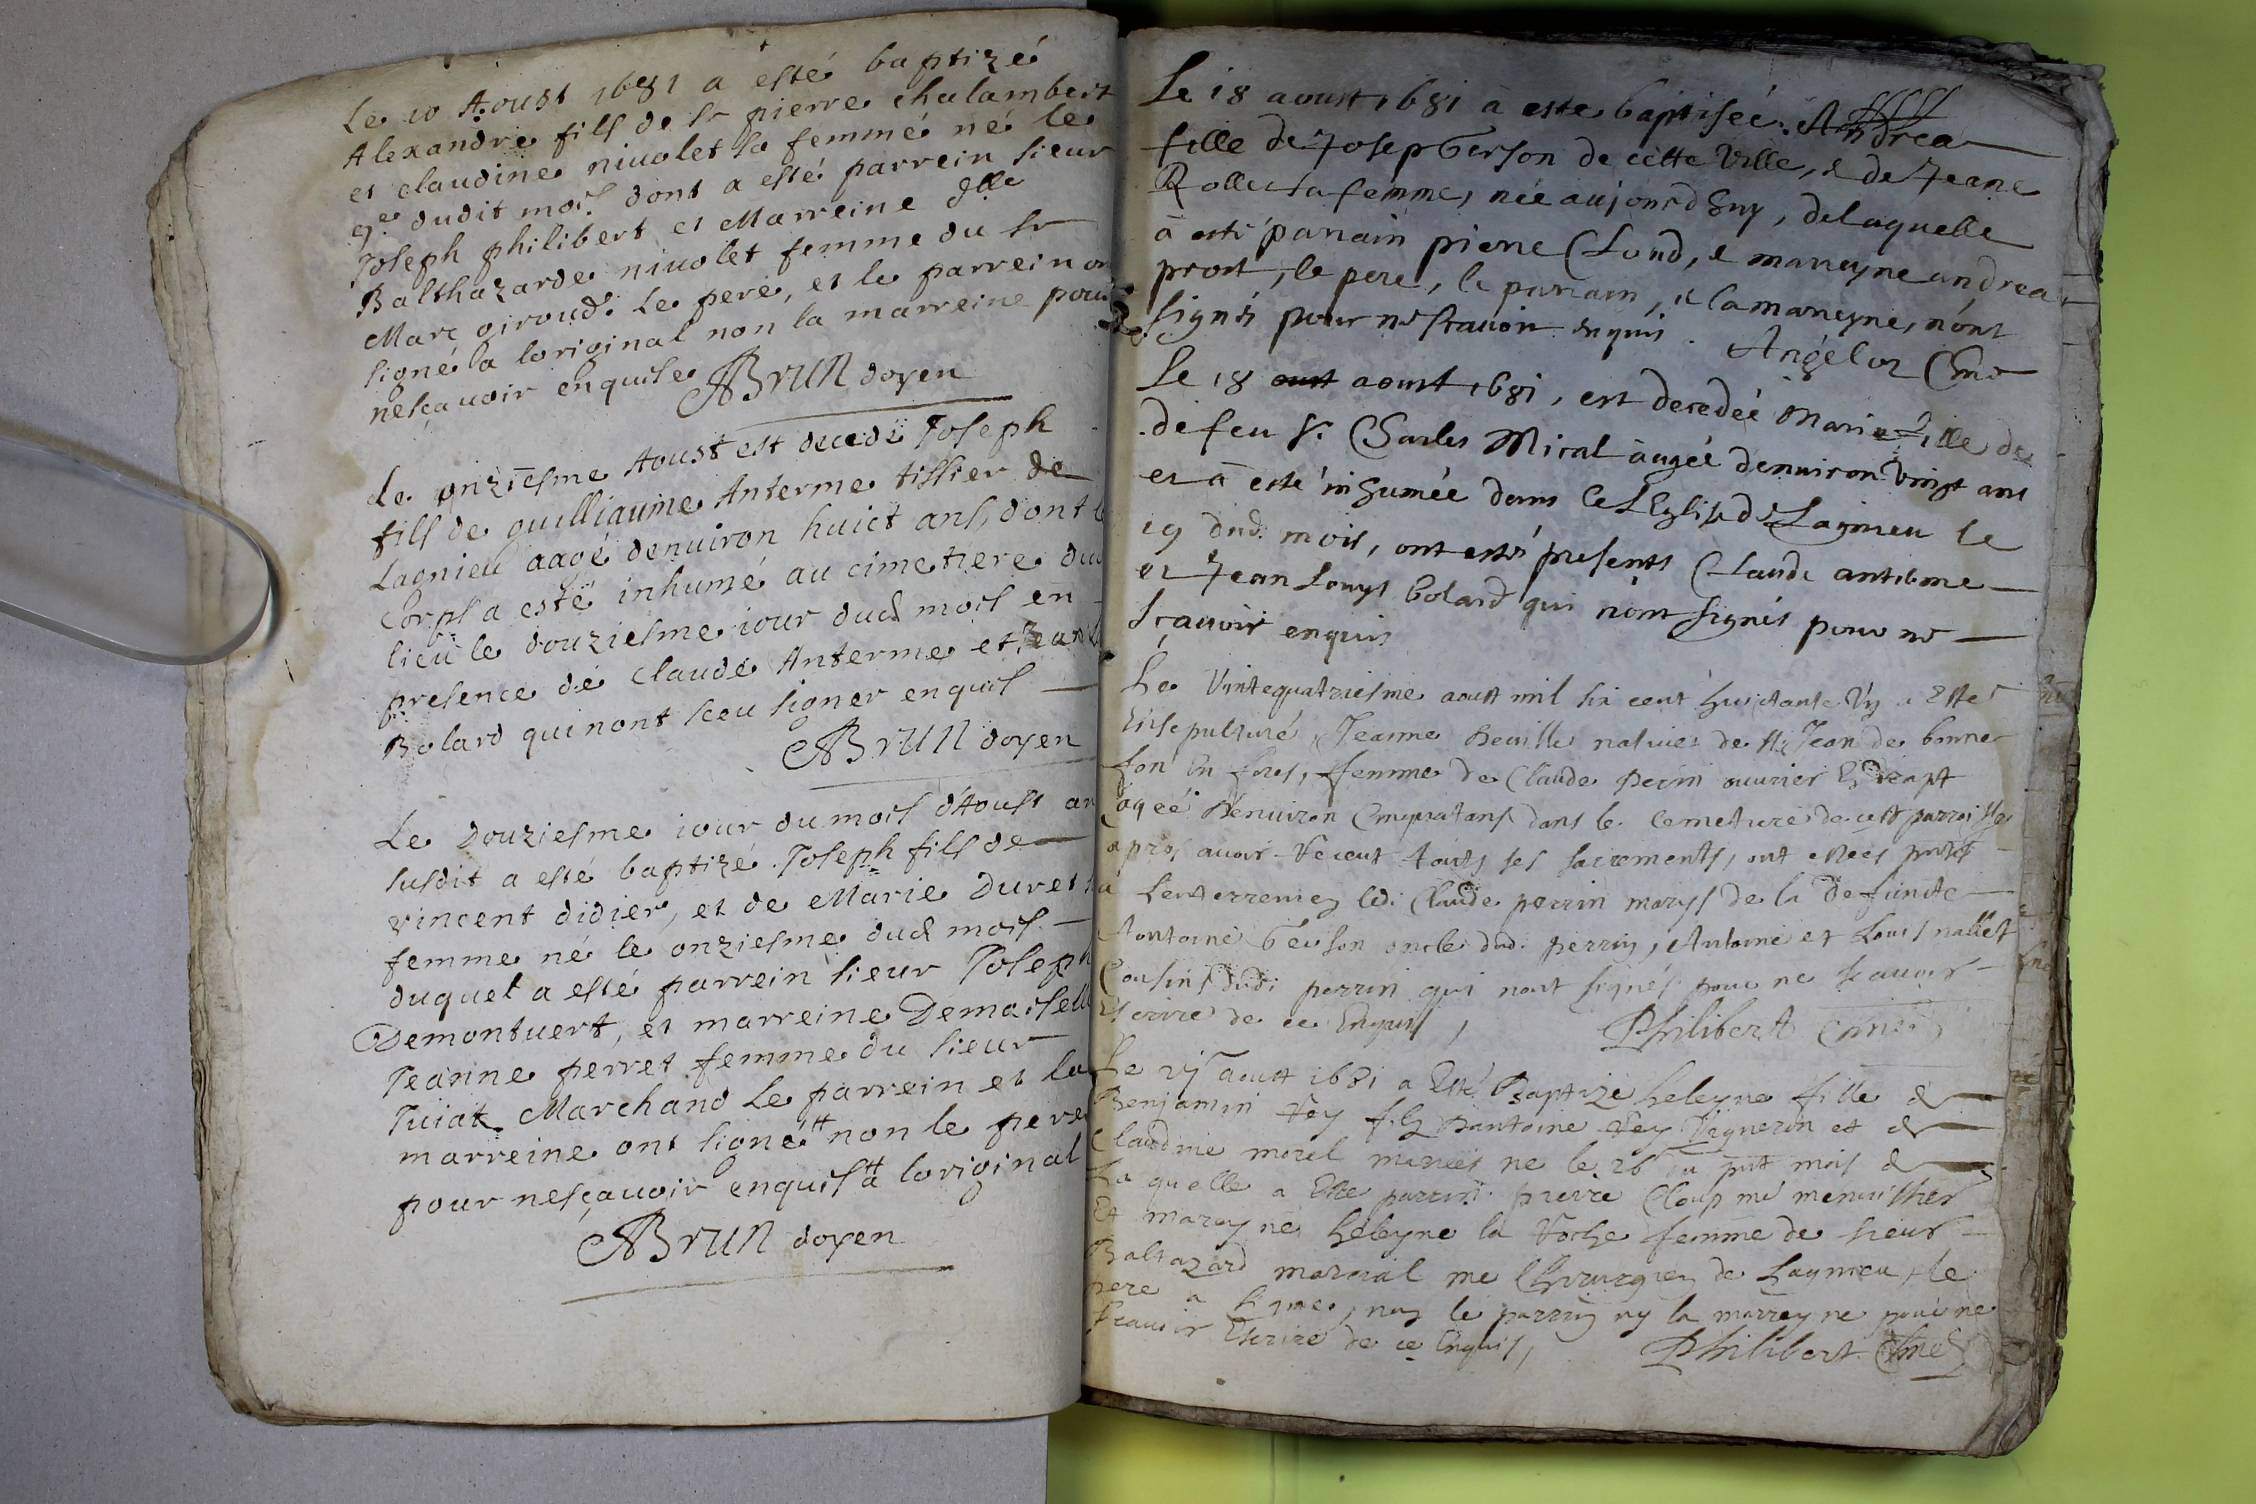 Le 10 Aoust 1681 a esté baptizé
Alexandre fils de sr pierre chalambert
et claudine nivolet sa femme né le
9e dudit mois dont a esté parrein sieur
Joseph philibert et Marreine dlle
Balthazarde nivolet femme du sr
Marc giroud. Le pere, et le parrein on
signé a loriginal non la marreine pour
nesçavoir enquise ABrun doyen
Le onziesme Aoust est decedé Joseph
fils de guilliaume Anterme tissier de
Lagnieu aagé denviron huict ans, dont l
Corps a esté inhumé au cimetiere dud
lieu le douziesme jour dud mois en
presence de Claude Anterme et Jean
Bolard qui nont sceu signer enquis
ABrun doyen
Le Douziesme jour du mois d'Aoust an
susdit a esté baptizé Joseph fils de
vincent didier, et de Marie Duret
femme né le onziesme dud mois
duquel a esté parrein sieur Joseph
Demontuert, et marreine Demoisell
Jeanne perret femme du sieur
Juiat Marchand Le parrein et la
marreine ont signé non le pere
pour nesçavoir enquis a loriginal
ABrun doyen
Le 18 aoust 1681 à este baptiseé Andrea
fille de Josep Gerson de cette Ville, e de Jeane
Rollet sa femme, neé aujourdhuy, de laquelle
à esté parrain pierre Clond, e marreyne andrea
prost, le pere, le parrain, e la mareyne, n'ont
signés pour ne scavoir enquis. Angelot
Le 18 aoust 1681, est decedeé Marie fille de
de feu Sr Charles Miral aageé denviron vingt ans
et à esté inhumée dans l'Eglise de Lagnieu le
19 dud. mois, ont estés presents Claude anterme
et Jean Louys bolard qui n'ont signés pour ne
sçavoir enquis
Le Vintequatriesme aoust mil six cent huictante Un a Este
Ensepulturé Jeanne native de St Jean de bonne
fon en fores, femme de Claude perin ouvrier drapt
agéé denviron Cinquatans dans le Cemetiere de cest parroisse
apres avoir receut touts ses sacrements, ont
a lenterremen led. Claude perrin marys de la defuncte
Antoine oncle dud. perrin, Antoine et Louis nallet
Cousins dud. perrin qui nont signés pour ne scavoir
Escrire de ce Enquis, Philibert
Le 27 aoust 1681 a Esté Baptizé heleyne fille de
Benjamin Vey filz Dantoine Vey Vigneron et de
Claudine morel mariés ne le 26 du pnt mois de
La quelle a Este parrin pierre menuisher
Et mareyne heleyne la Roche femme de sieur
Baltazard mareial me Chirurgien de Lagnieu, le
pere a signe, non le parrin ny la marreyne pour ne
scavoir Escrire de ce Enquis, Philibert